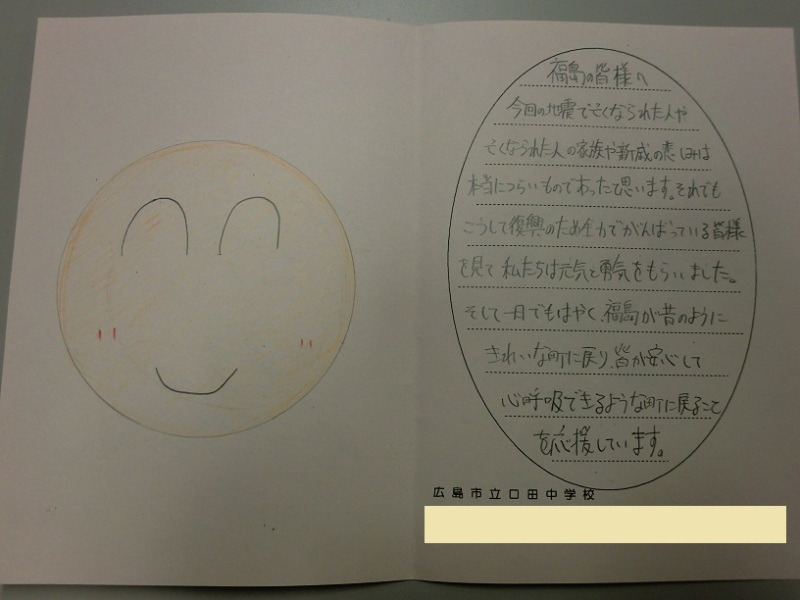 福島の皆様へ
今回の地震で亡くなられた人や
亡くなられた人の家族や親戚の悲しみは
本当につらいものであったと思います。それでも
こうして復興のため全力でがんばっている皆様
を見て私たちは元気と勇気をもらいました。
そして一日でもはやく、福島が昔のように
きれいな町に戻り、皆が安心して
心呼吸できるような町に戻ること
を応援しています。
広島市立口田中学校